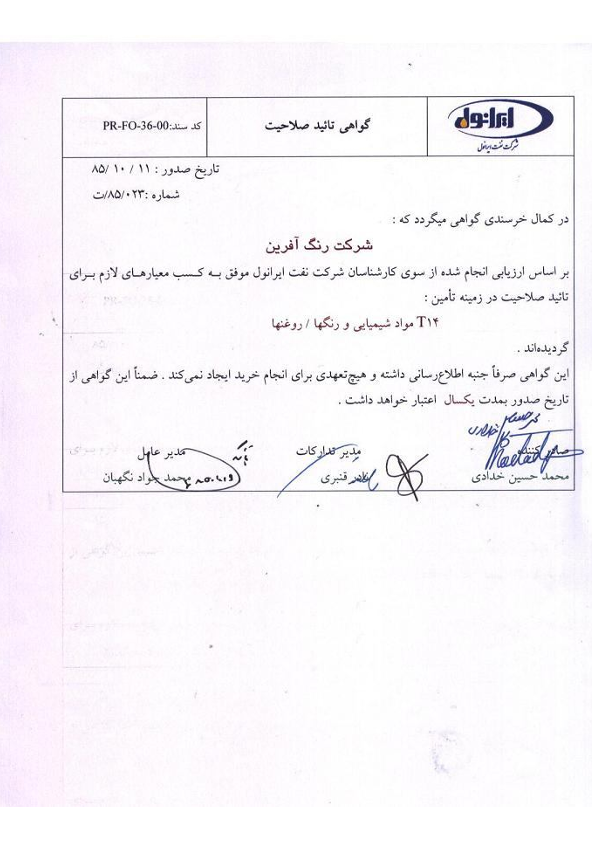 ایرانول
شرکت نفت ایرانول
گواهی تائید صلاحیت
کد سند:PR-FO-36-00
تاریخ صدور : ۱۱ / ۱۰ /۸۵
شماره :۸۵/۰۲۳/ت
در کمال خرسندی گواهی میگردد که :
شرکت رنگ آفرین
بر اساس ارزیابی انجام شده از سوی کارشناسان شرکت نفت ایرانول موفق به کسب معیارهای لازم برای
تائید صلاحیت در زمینه تأمین :
T۱۴ مواد شیمیایی و رنگها / روغنها
گردیده‌اند .
این گواهی صرفاً جنبه اطلاع‌رسانی داشته و هیچ‌تعهدی برای انجام خرید ایجاد نمی‌کند . ضمناً این گواهی از
تاریخ صدور بمدت یکسال اعتبار خواهد داشت .
صادر کننده مدیر تدارکات مدیر عامل
محمد حسین خدادی نادر قنبری محمد جواد نگهبان